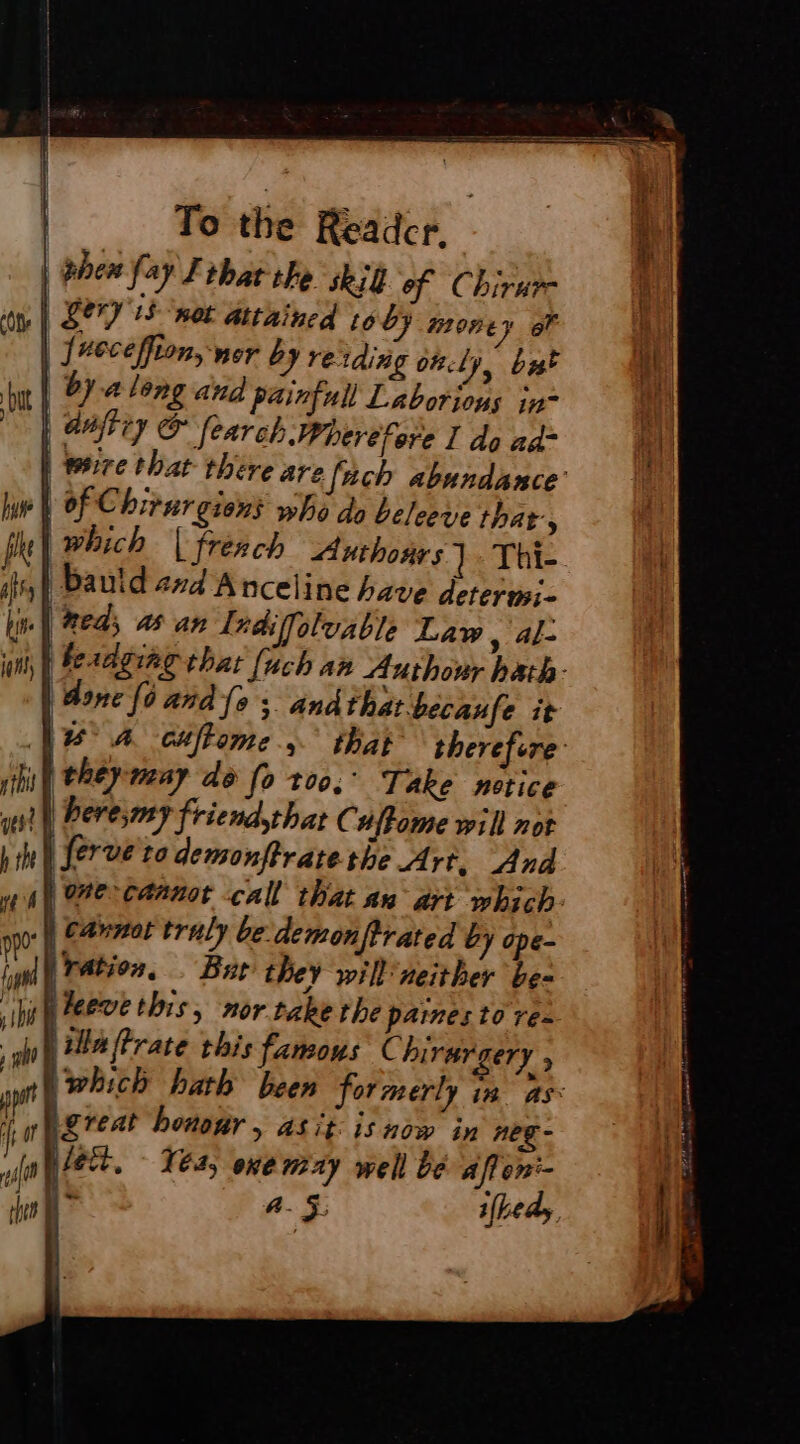 To the Reader.
then ſay I that the skill of Chirur-
gery is not attained to by money or
ſucceſſion, nor by reading onely, but
by a long and painfull Laborious in-
duſtry & ſearch. Wherefore I do ad-
mire that there are ſuch abundance
of Chirurgions who do beleeve that,
which [french Authours] Thi-
bauld and Anceline have determi-
ned, as an Indiſſolvable Law, al-
leadging that ſuch an Authour hath
done ſo and ſo; and that becauſe it
is a cuſtome, that therefore
they may do ſo too. Take notice
here, my friend, that Cuſtome will not
ſerve to demonſtrate the Art, And
one cannot call that an art which
cannot truly be demonſtrated by ope-
ration. But they will neither be-
leeve this, nor take the paines to re-
illuſtrate this famous Chirurgery,
which hath been formerly in as
great honour, as it is now in neg-
lect, Yea, one may well be aſtoni-
a. 5. iſhed,